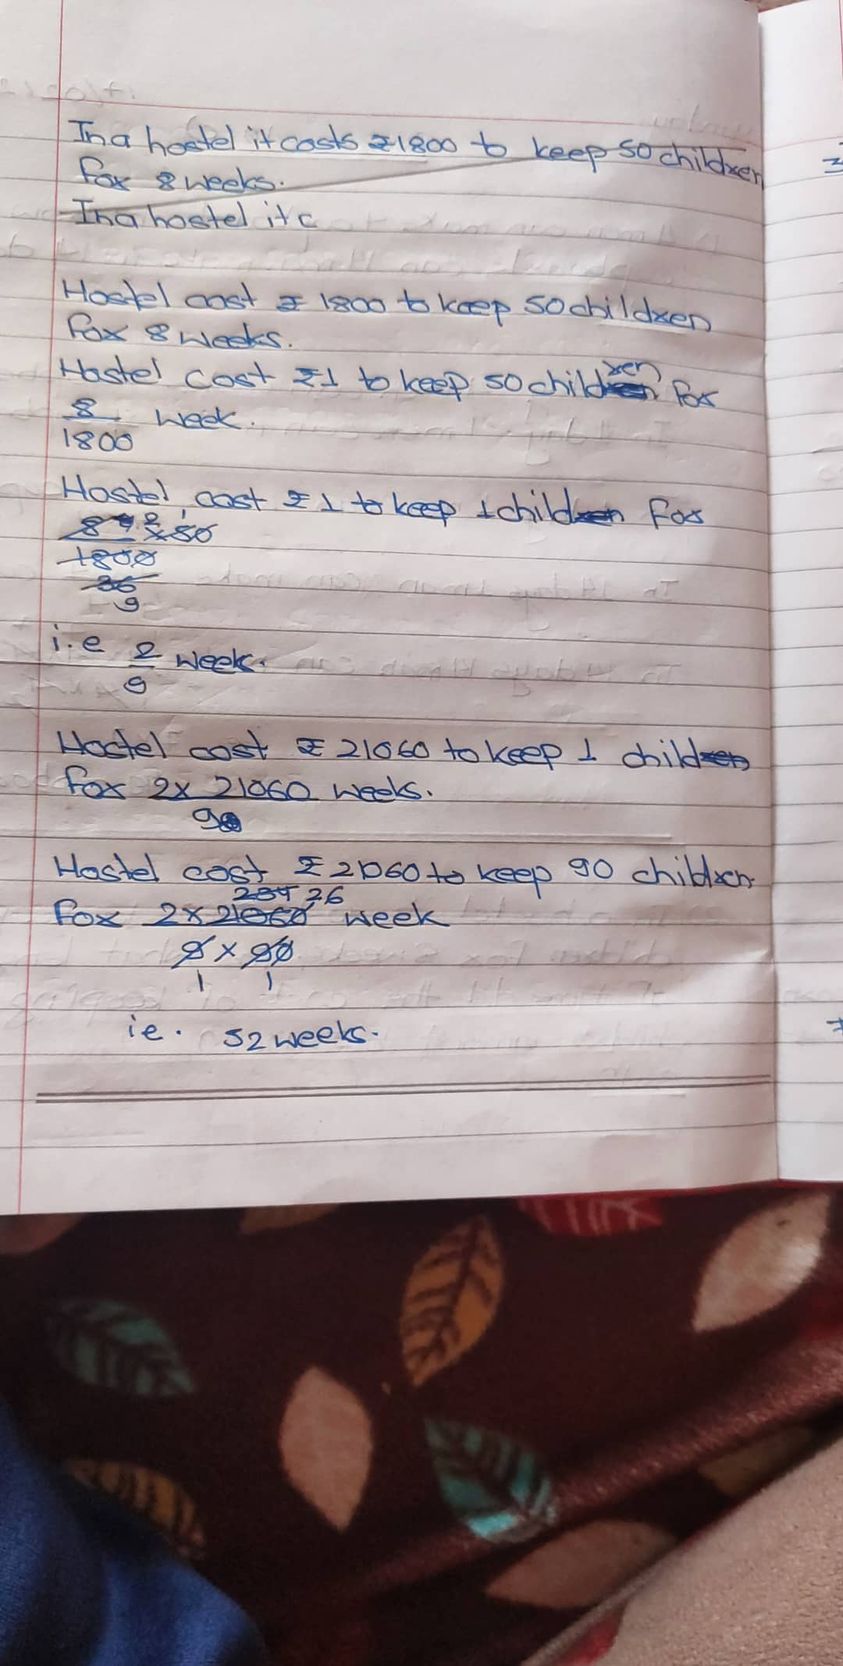 In a hostel it costs ₹1800 to keep 50 children
for 8 weeks.
In a hostel it c
Hostel cost ₹ 1800 to keep 50 children
for 8 weeks.
Hostel cost ₹1 to keep 50 children for
8/1800 week.
Hostel cost ₹1 to keep 1 child for
8 4 2 x 50
1800
36
9
i.e 2/9 week.
Hostel cost ₹ 21060 to keep 1 child
for 2x 21060 weeks.
9
Hostel cost ₹21060 to keep 90 children
234 26
for 2 x 21060 week
9 x 90
1 1
ie. 52 weeks.